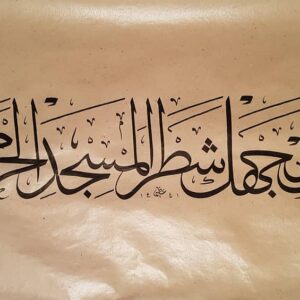 وجهك شطر المسجد الحر